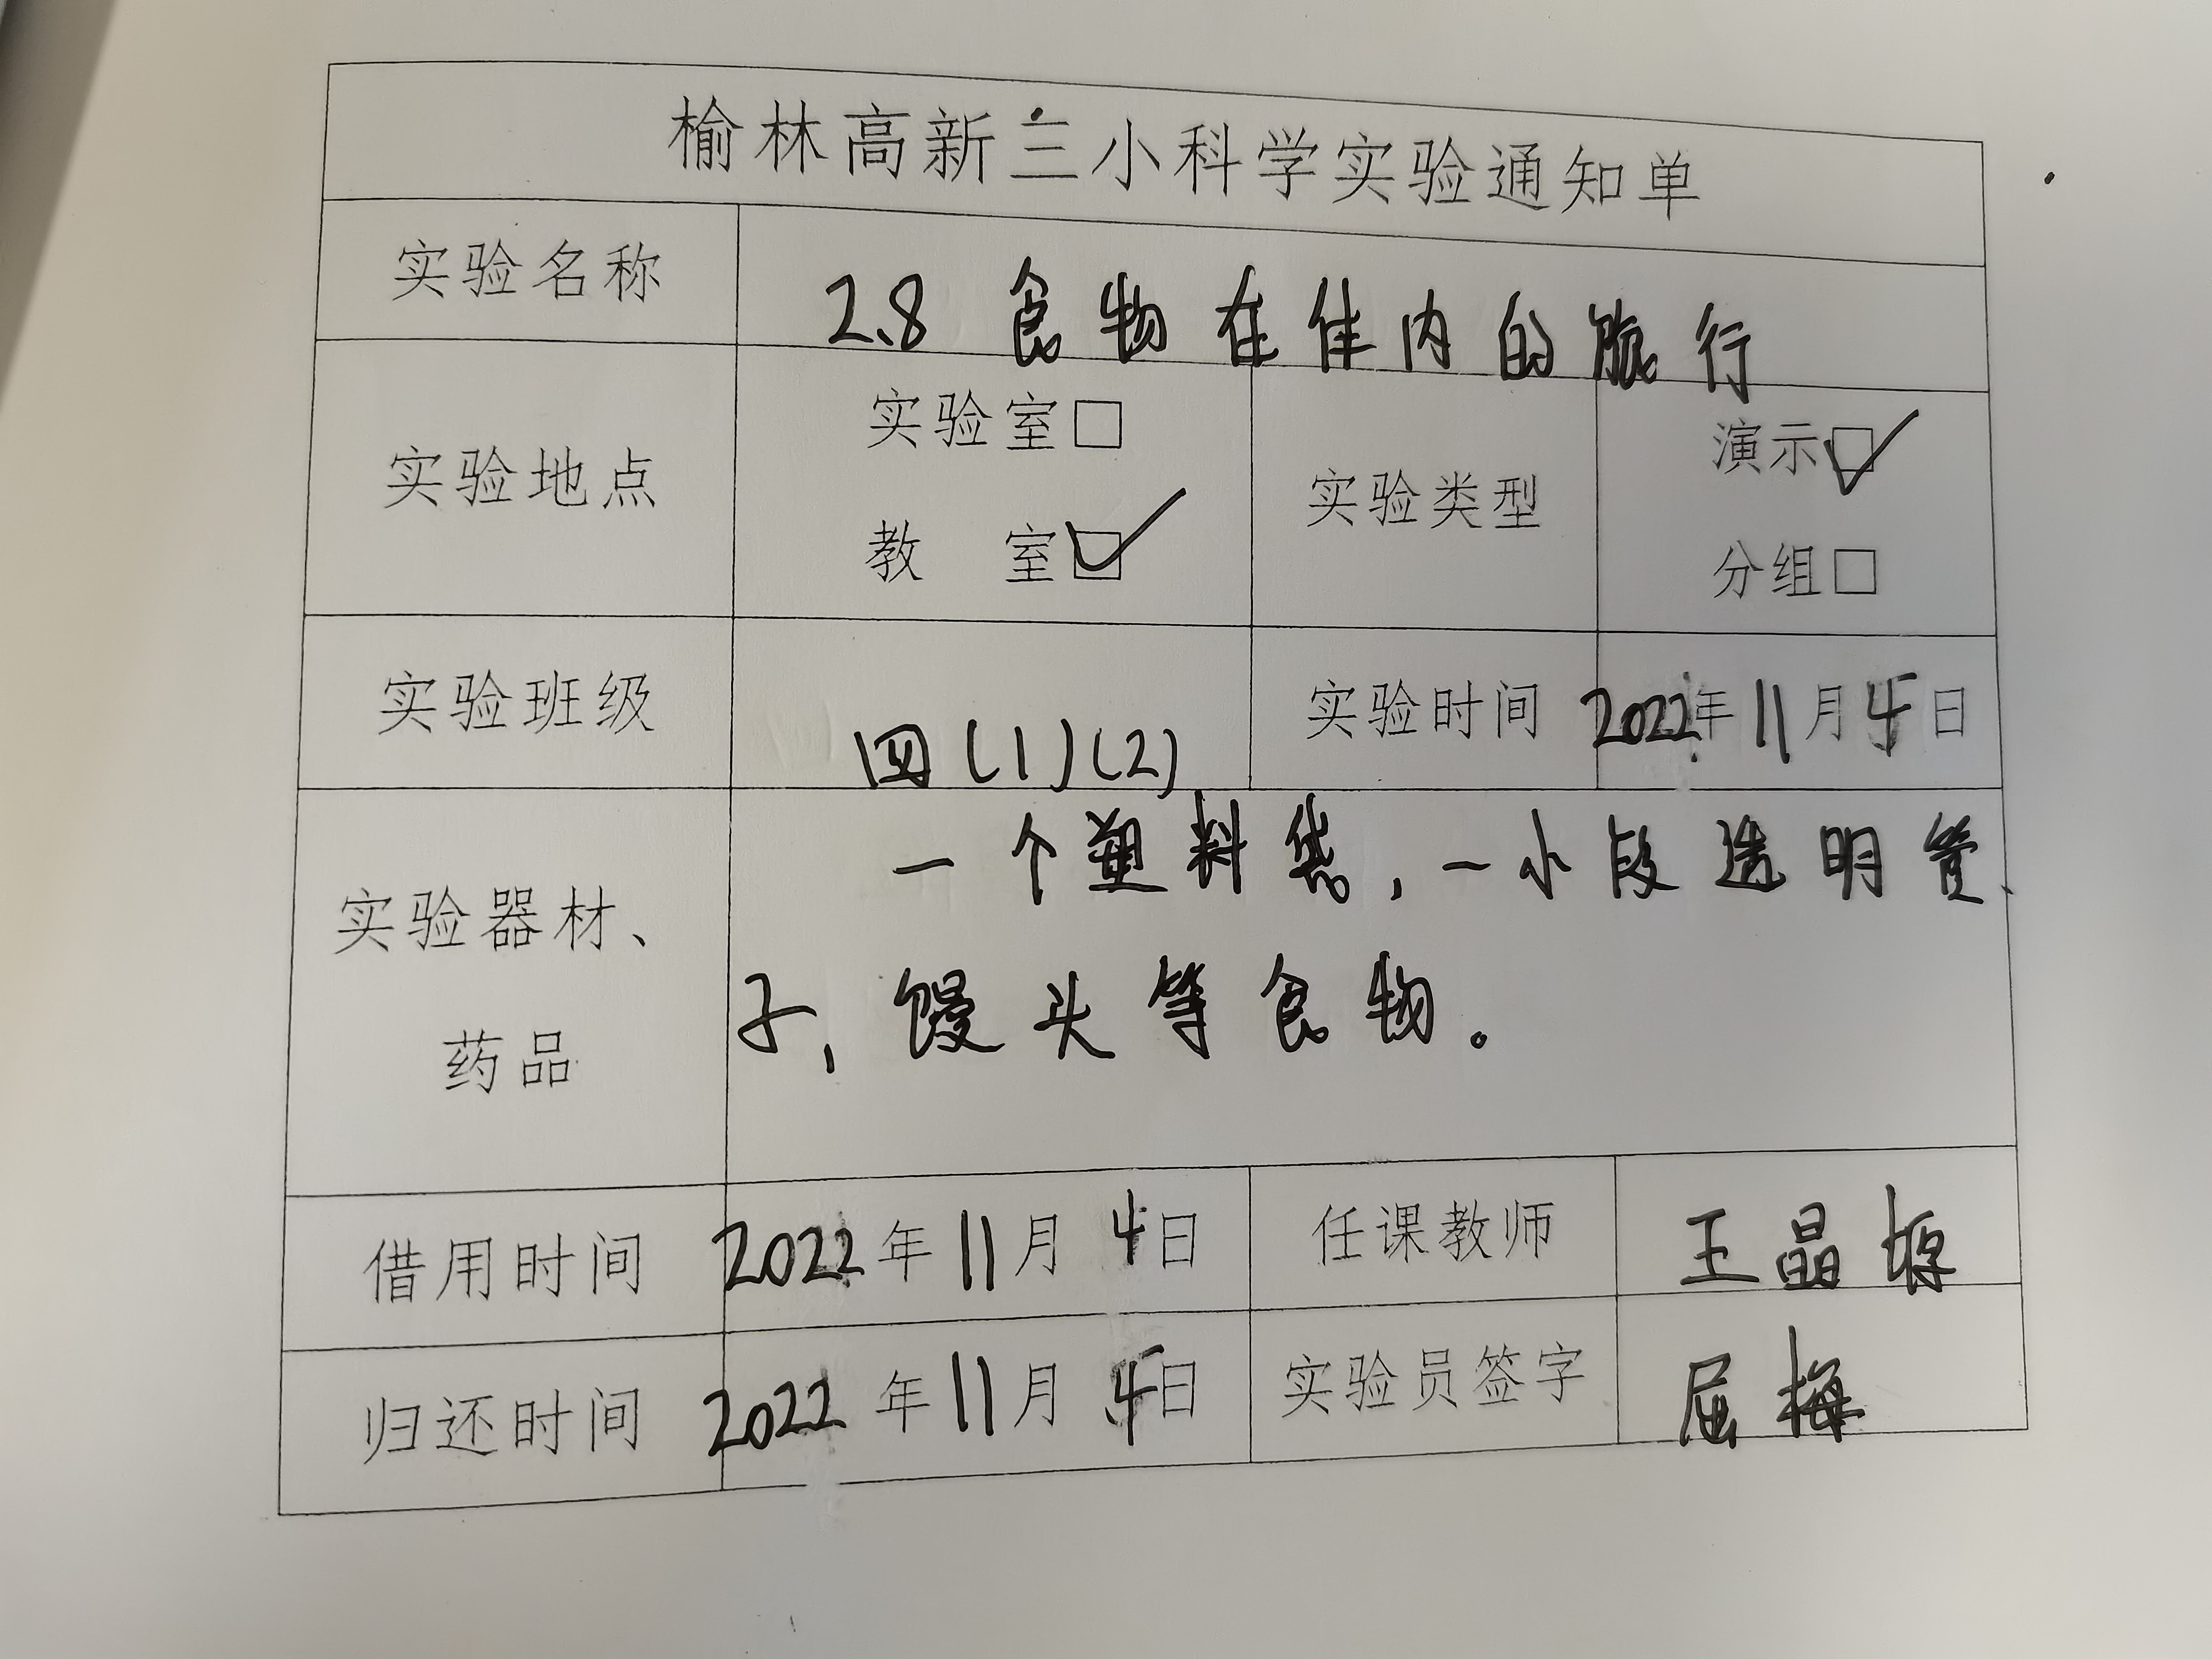 榆林高新三小科学实验通知单
实验名称 2.8 食物在体内的旅行
实验地点 实验室□ 教 室☑ 实验类型 演示☑ 分组□
实验班级 四(1)(2) 实验时间 2022年11月4日
实验器材、药品 一个塑料袋,一小段透明管
子,馒头等食物。
借用时间 2022年11月4日 任课教师 王晶
归还时间 2022年11月4日 实验员签字 屈梅